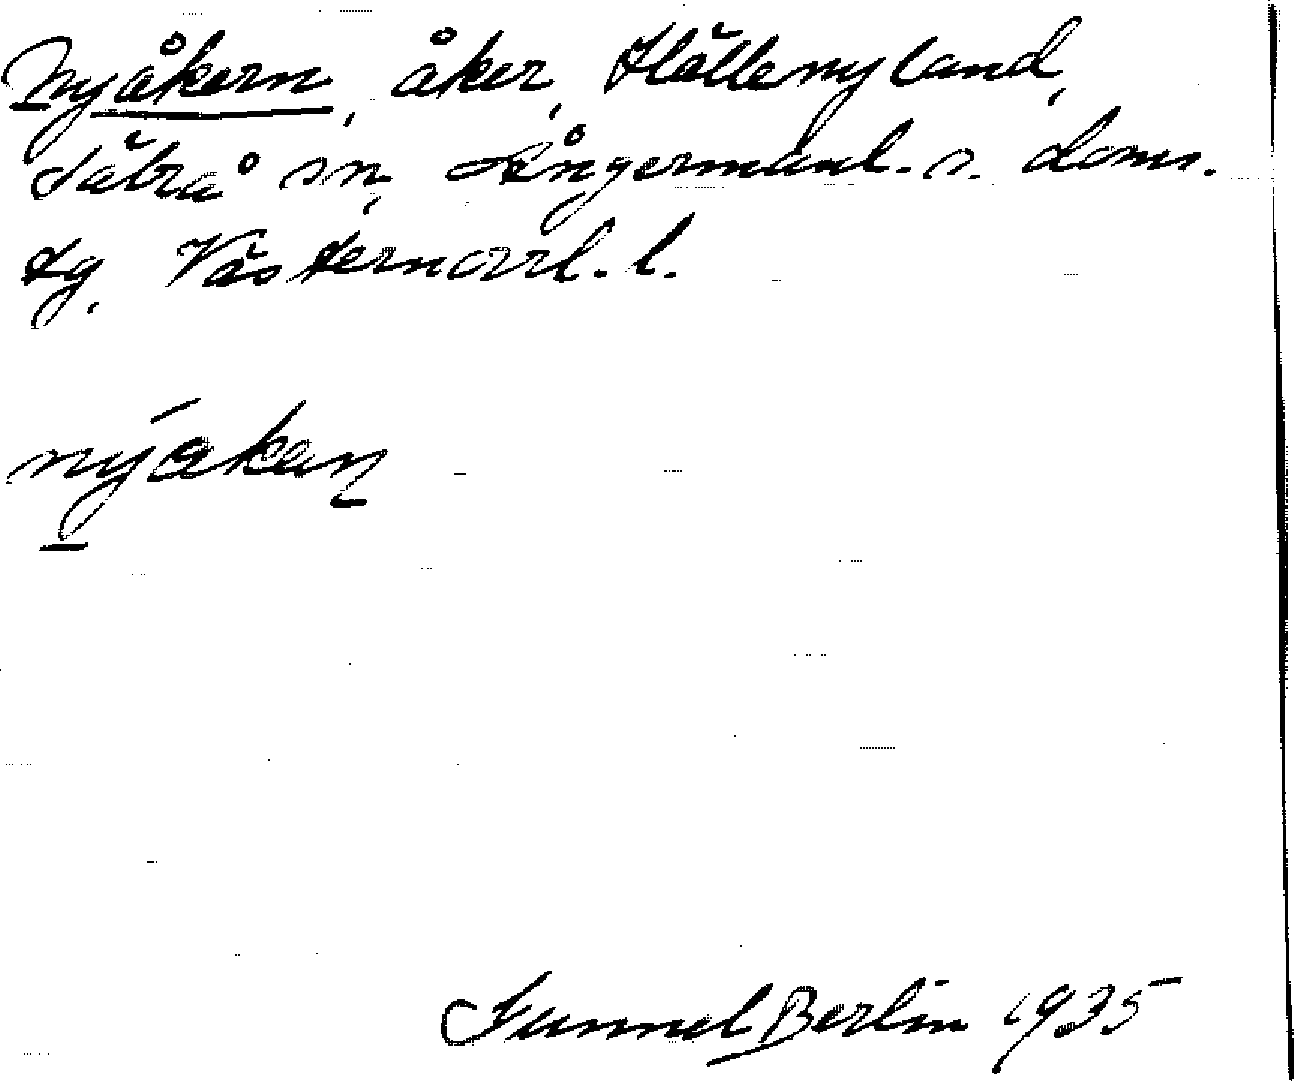 Nyåkern, åker, Hällenyland,
Säbrå sn, Ångermanl. s. doms.
tg, Västernorrl. l.
nýakan
Gunnel Berlin 1935